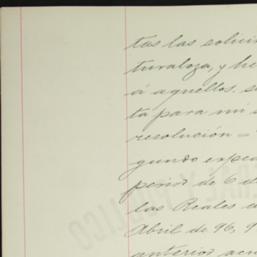 tas las solici
turaleza, y he
á aquellos, se
ta para mi
resolución =
gundo exped
period de 6 d
las Reales
Abril de 96, 9
anterior acu